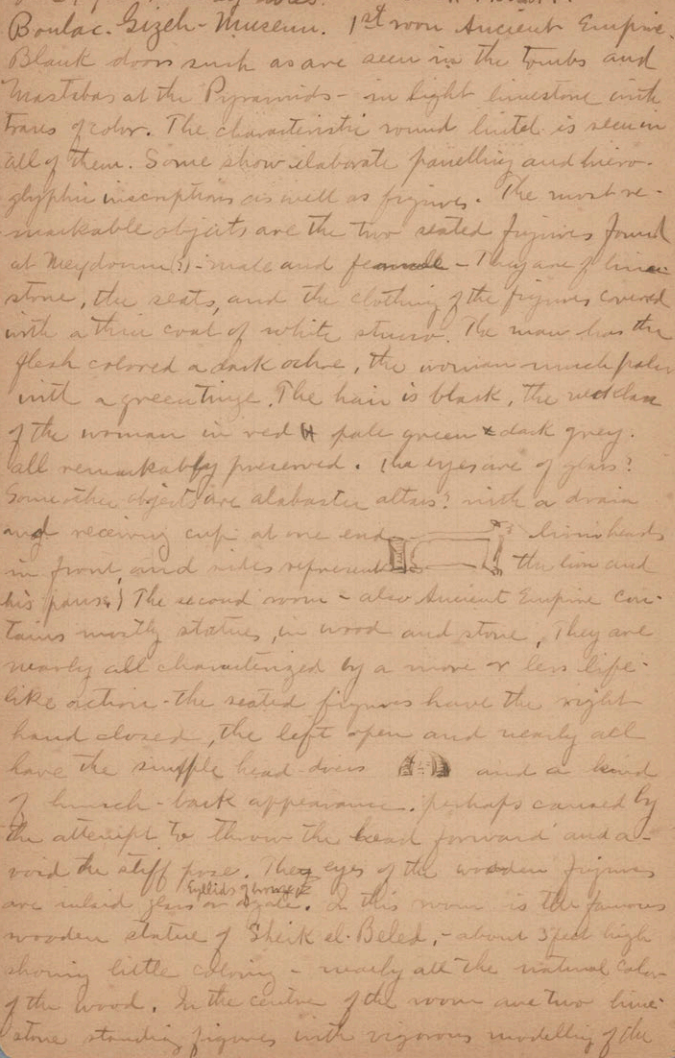 Boulac-Gizeh-Museum. 1st room Ancient Empire.
Blank doors such as are seen in the tombs and
Mastabas at the Pyramids - in light limestone with
traces of color. The characteristic round lintel is seen in
all of them. Some show elaborate panelling and hiero-
glyphic inscriptions as well as figures. The most re-
markable objects are the two seated figures found
at Meydoum(?) - male and female - They are of lime-
stone, the seats, and the clothing of the figures covered
with a thin coat of white stucco. The man has the
flesh colored a dark ochre, the woman much paler
with a green tinge. The hair is black, the necklace
of the woman in red pale green & dark grey.
all remarkably preserved. The eyes are of glass?
Some other objects are alabaster altars? with a drain
and receiving cup at one end lions heads
in front and sides represent the lion and
his paws.) The second room - also Ancient Empire con-
tains mostly statues, in wood and stone. They are
nearly all characterized by a more or less life-
like action - the seated figures have the right
hand closed, the left open and nearly all
have the simple head dress and a kind
of hunch-back appearance. perhaps caused by
the attempt to throw the head forward and a-
void the stiff pose. The eyes of the wooden figures
Eyelids of bronze
are inlaid glass or. In this room is the famous
wooden statue of Sheik el-Beled, - about 3 feet high
showing little coloring - nearly all the natural color
of the wood. In the centre of the room are two lime-
stone standing figures with vigorous modelling of the